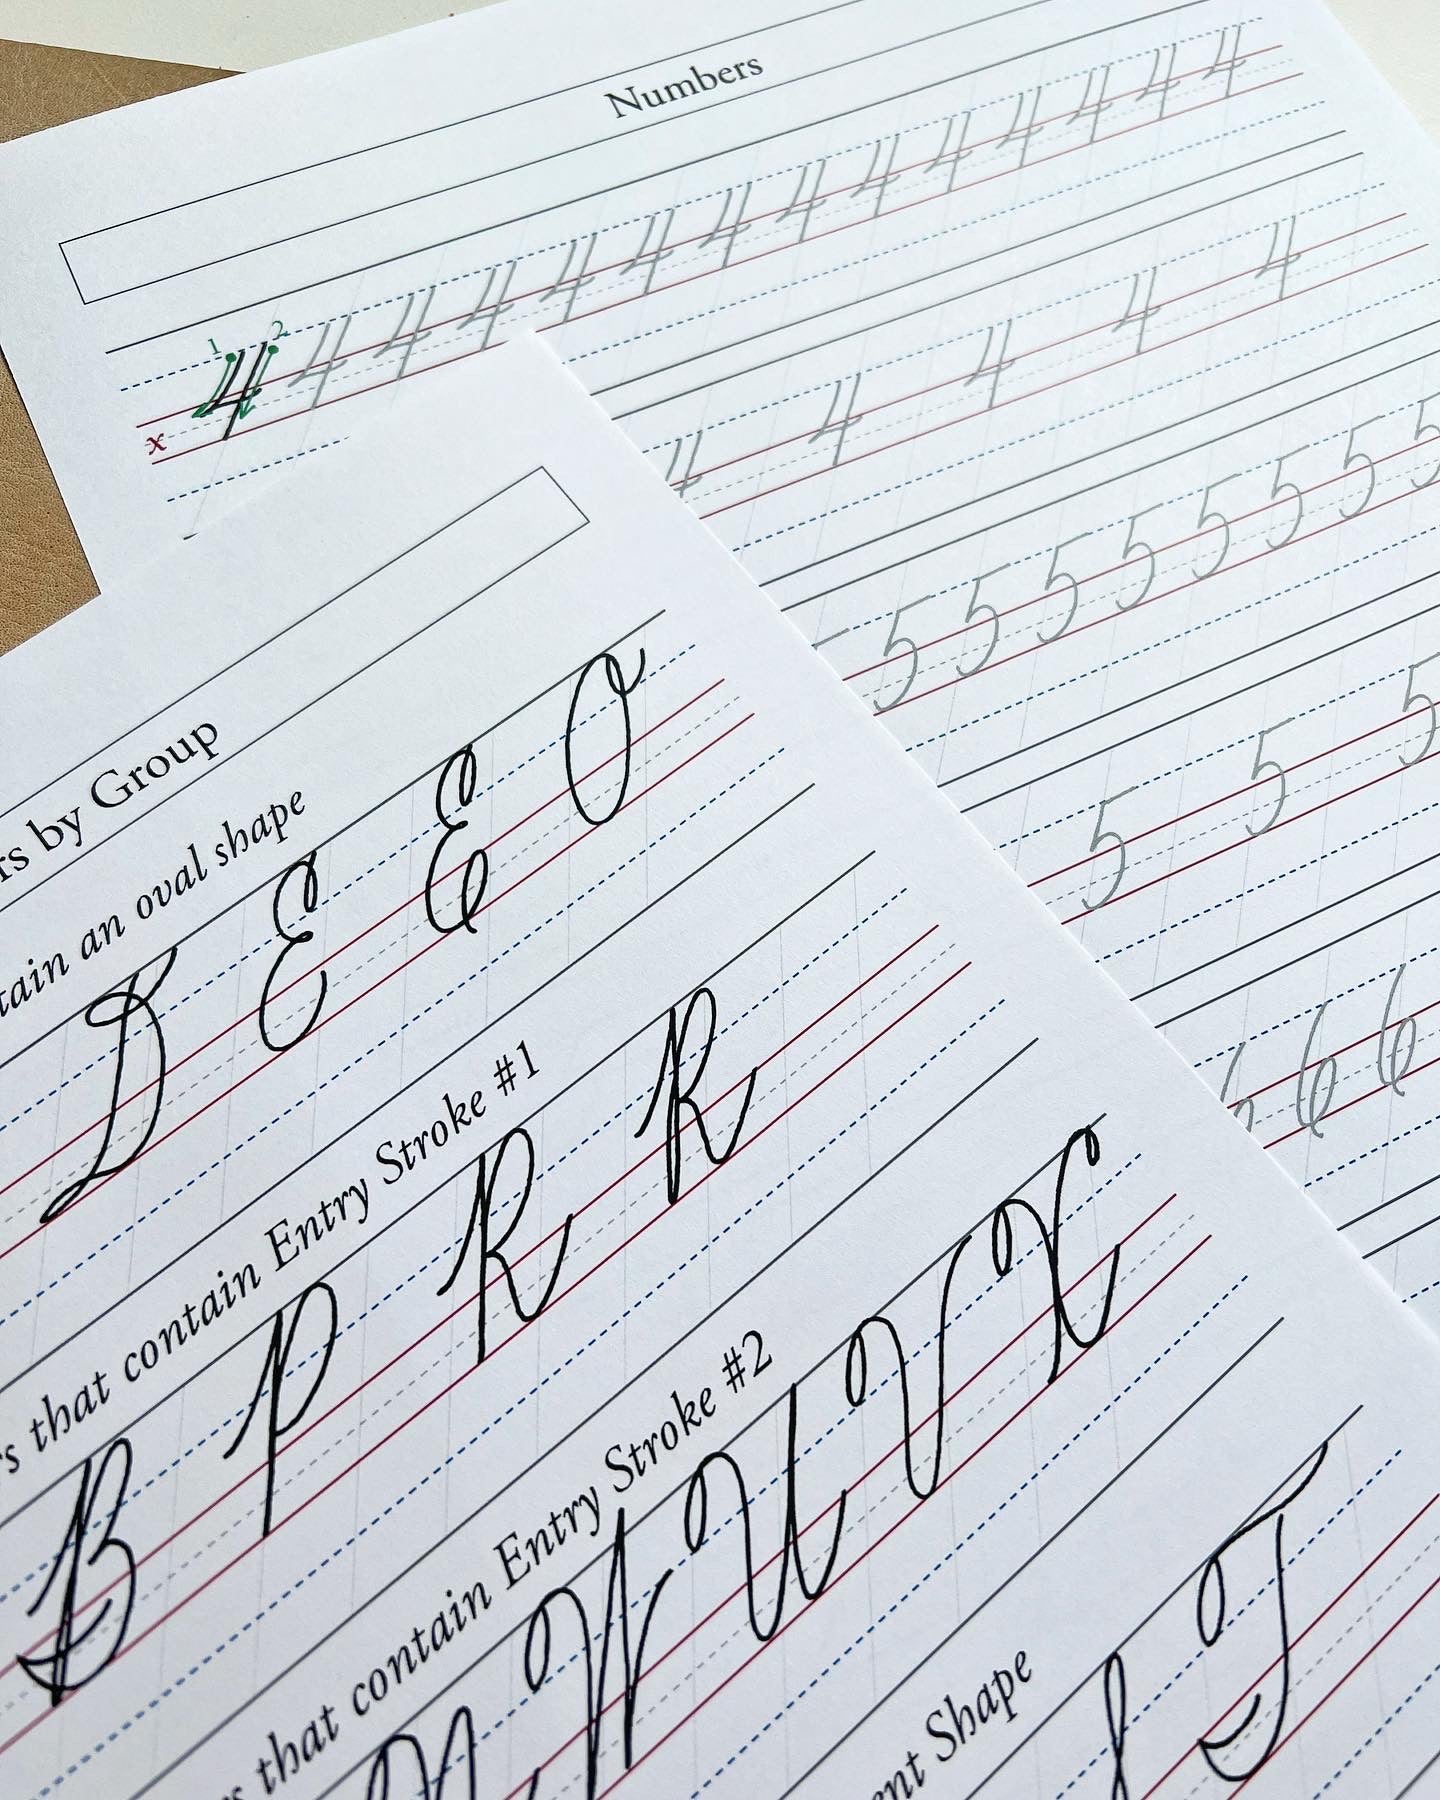 Numbers
1 2
4 4 4 4 4 4 4 4 4 4 4 4 4 4
x
4 4 4 4 4
5 5 5 5 5 5 5 5
5 5 5
6 6
by Group
an oval shape
D E E O
that contain Entry Stroke #1
B P R R
that contain Entry Stroke #2
U V X
Shape
T